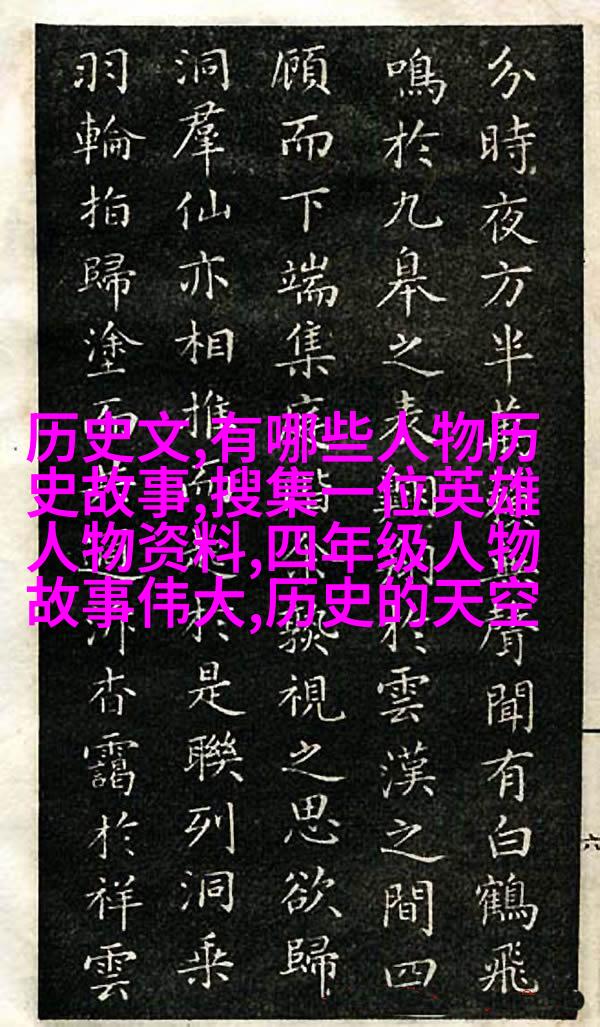 历史文,有哪些人物历
史故事,搜集一位英雄
人物资料,四年级人物
故事伟大,历史的天空
分時夜方半萬聲聞有白鶴飛
鳴於九皋之表於雲漢之間四
顧而下端集視之思欲歸
洞羣仙亦相推於是聯列洞乘
羽輪指歸塗而杳靄於祥雲
六